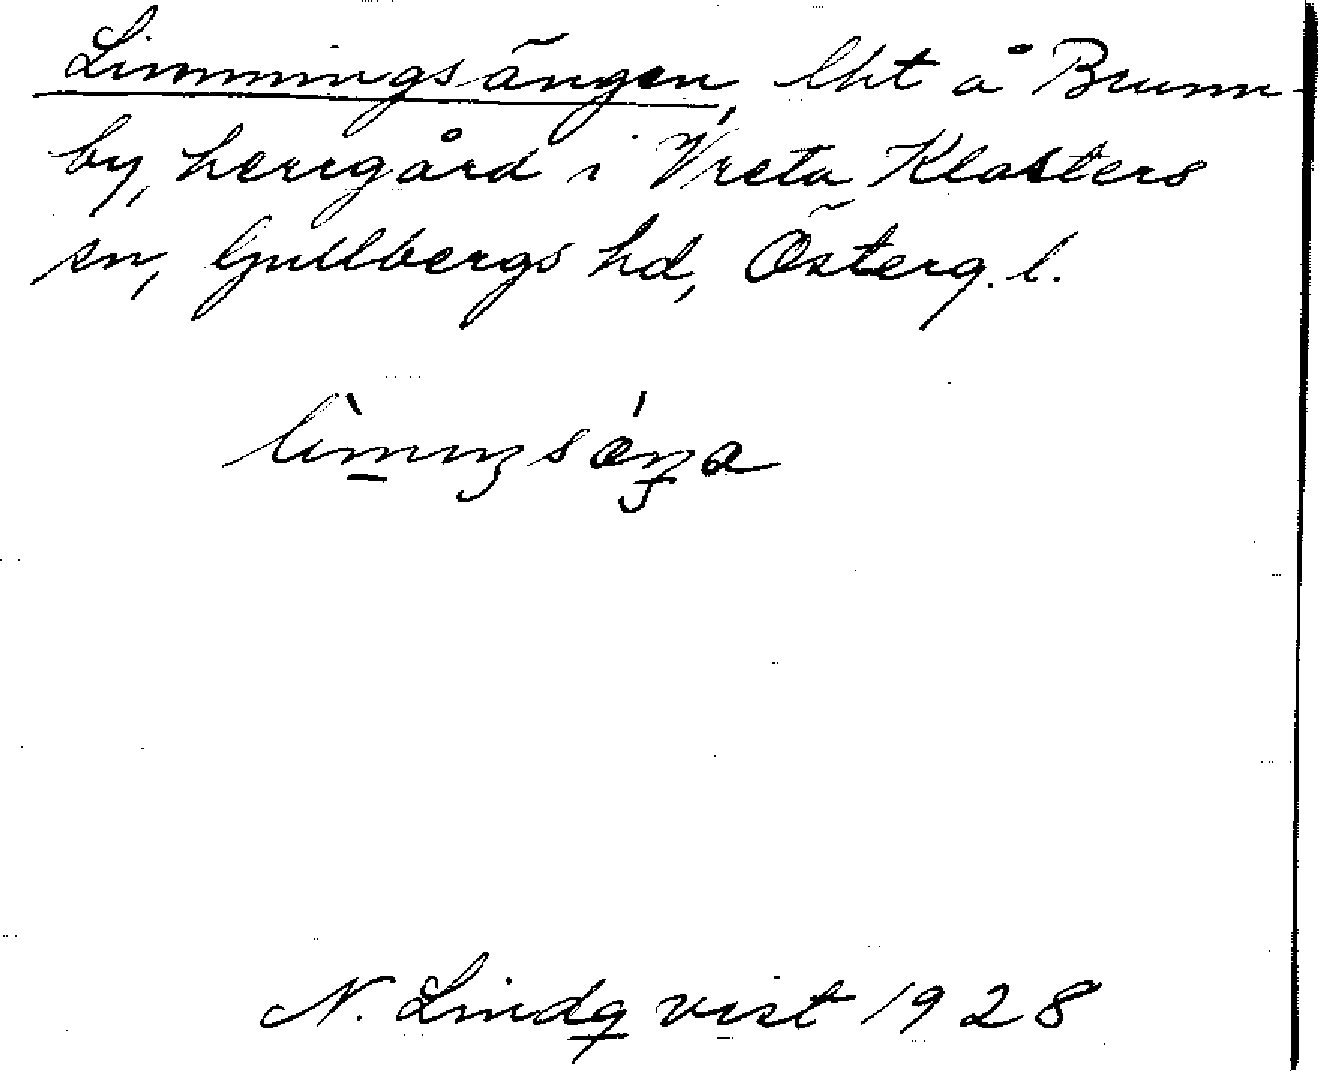 Limmingsängen, lht å Brunn-
by, herrgård i Vreta Klosters
sn, Gullbergs hd, Österg. l.
N. Lindqvist 1928